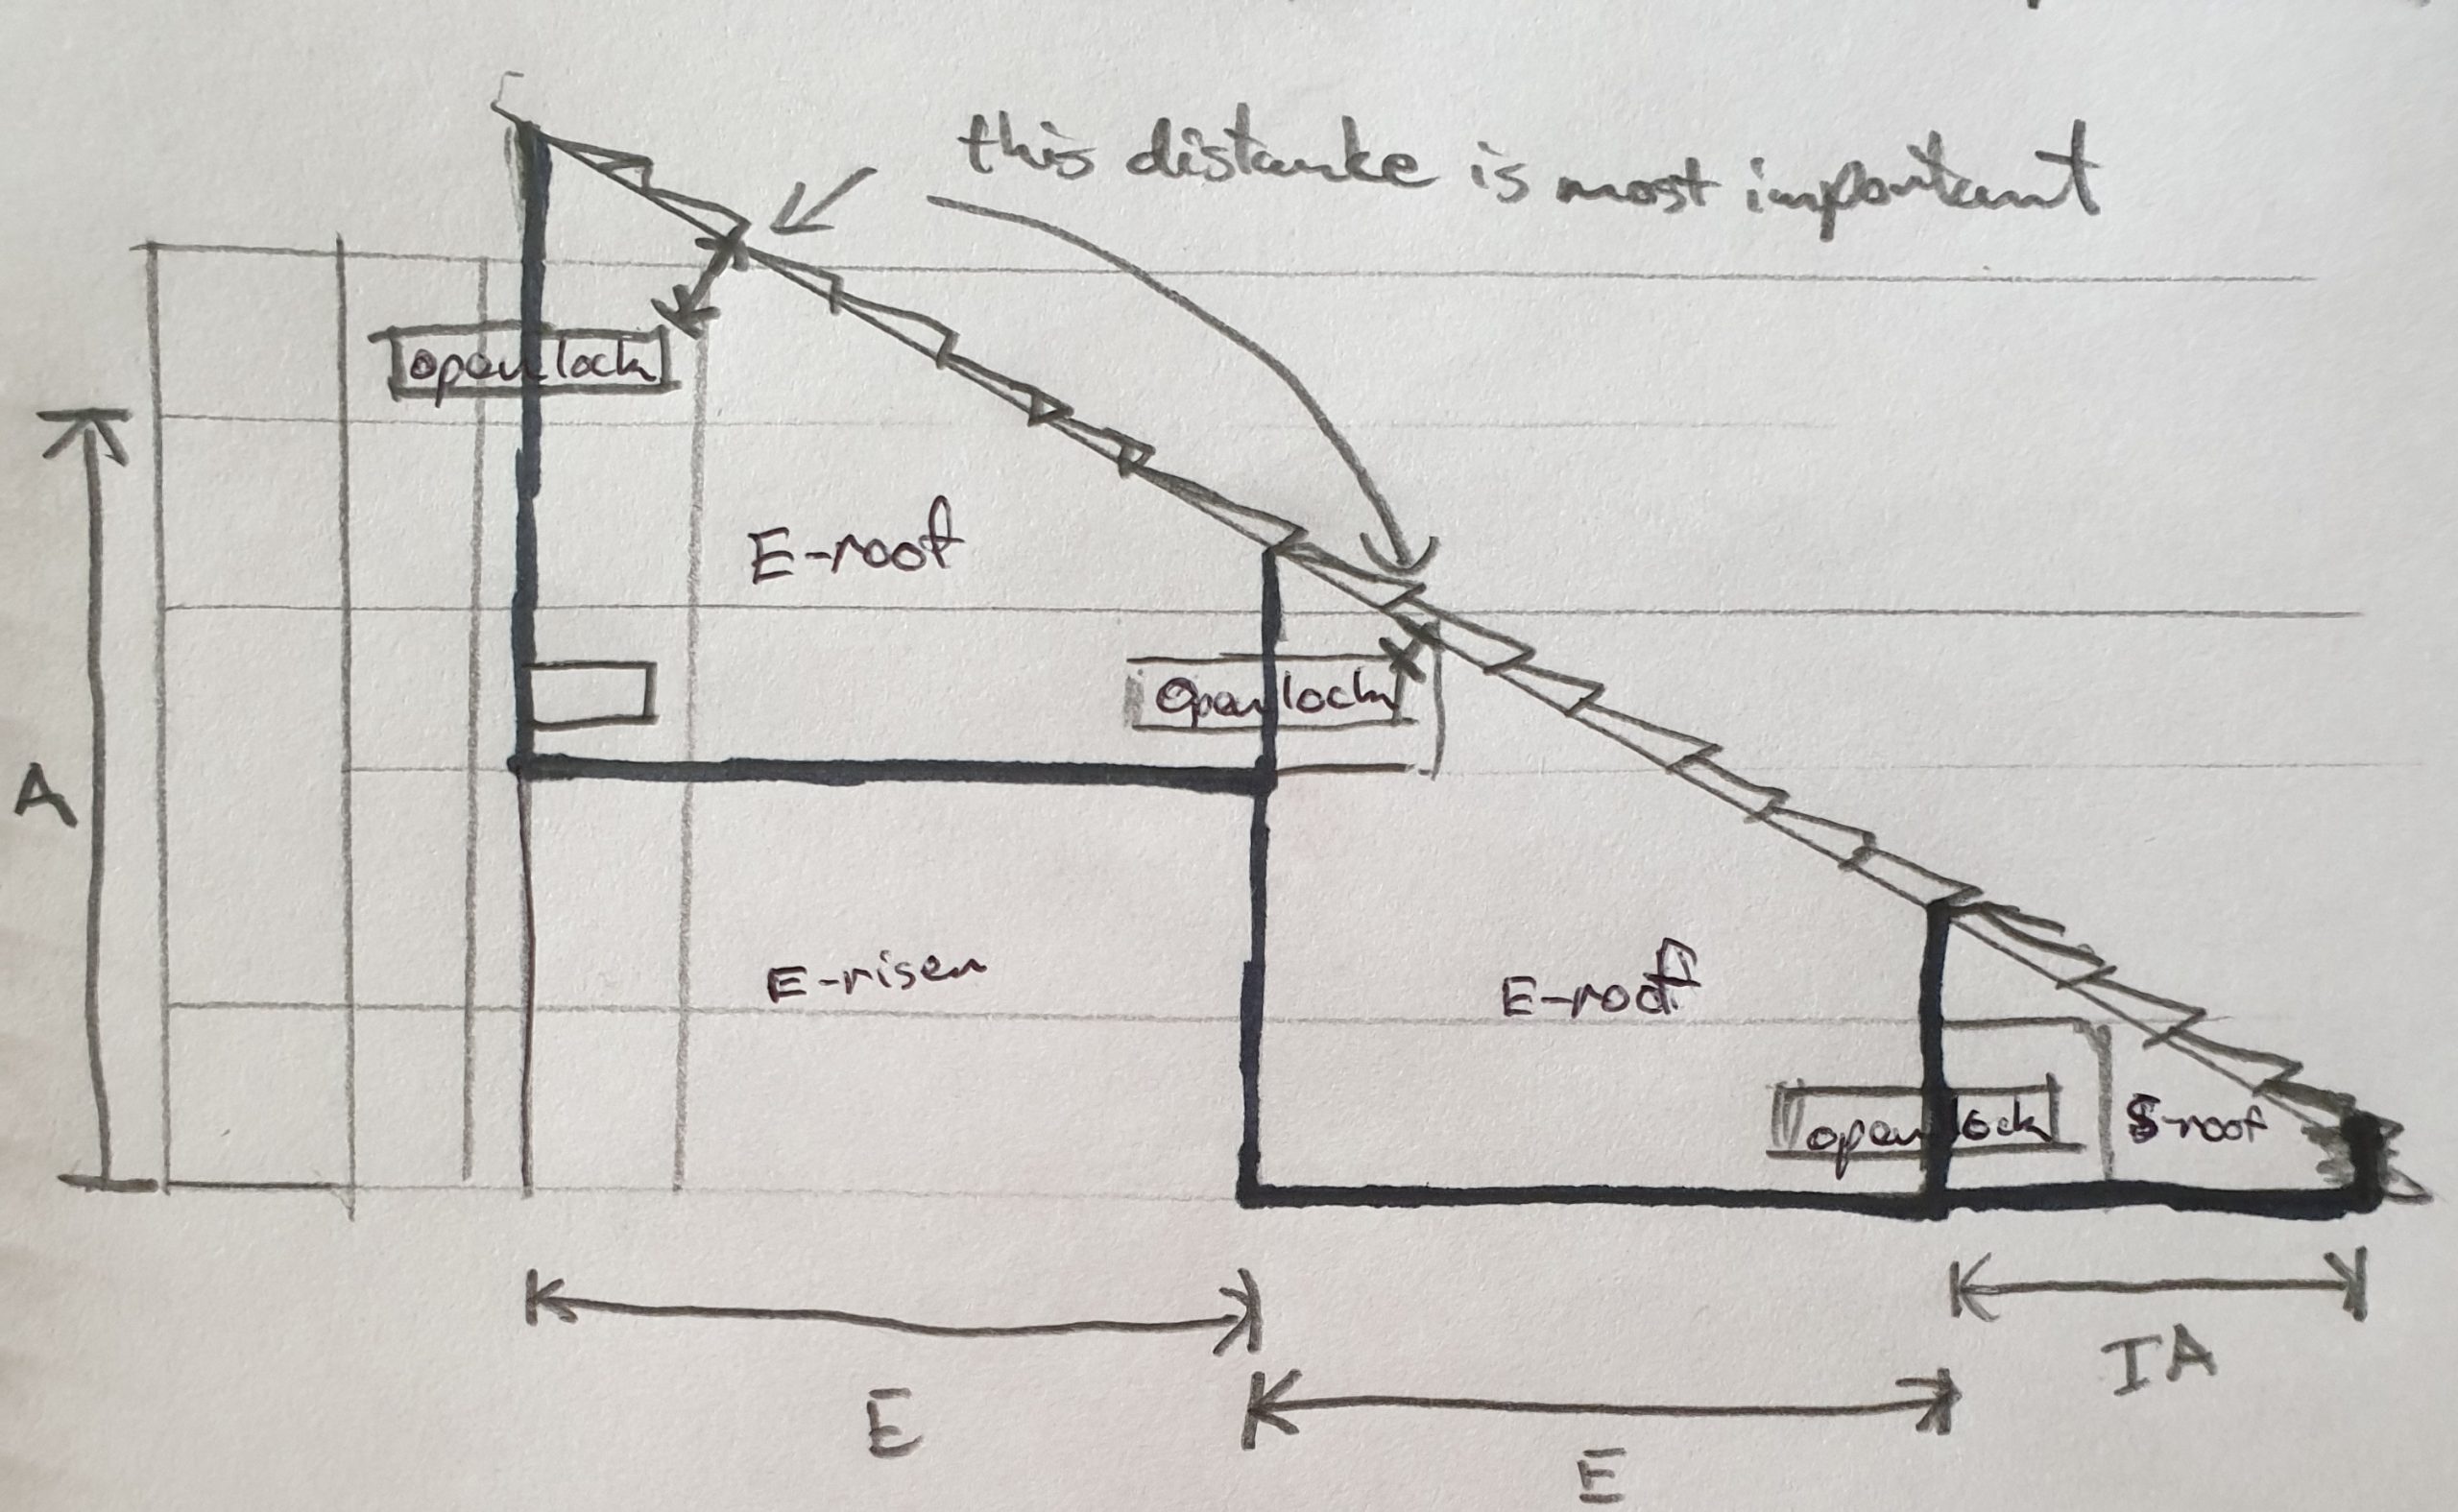 this distanke is most important
open lock
E-roof
open lock
A
E-risen
E-roof
open lock
S-roof
E
E
IA